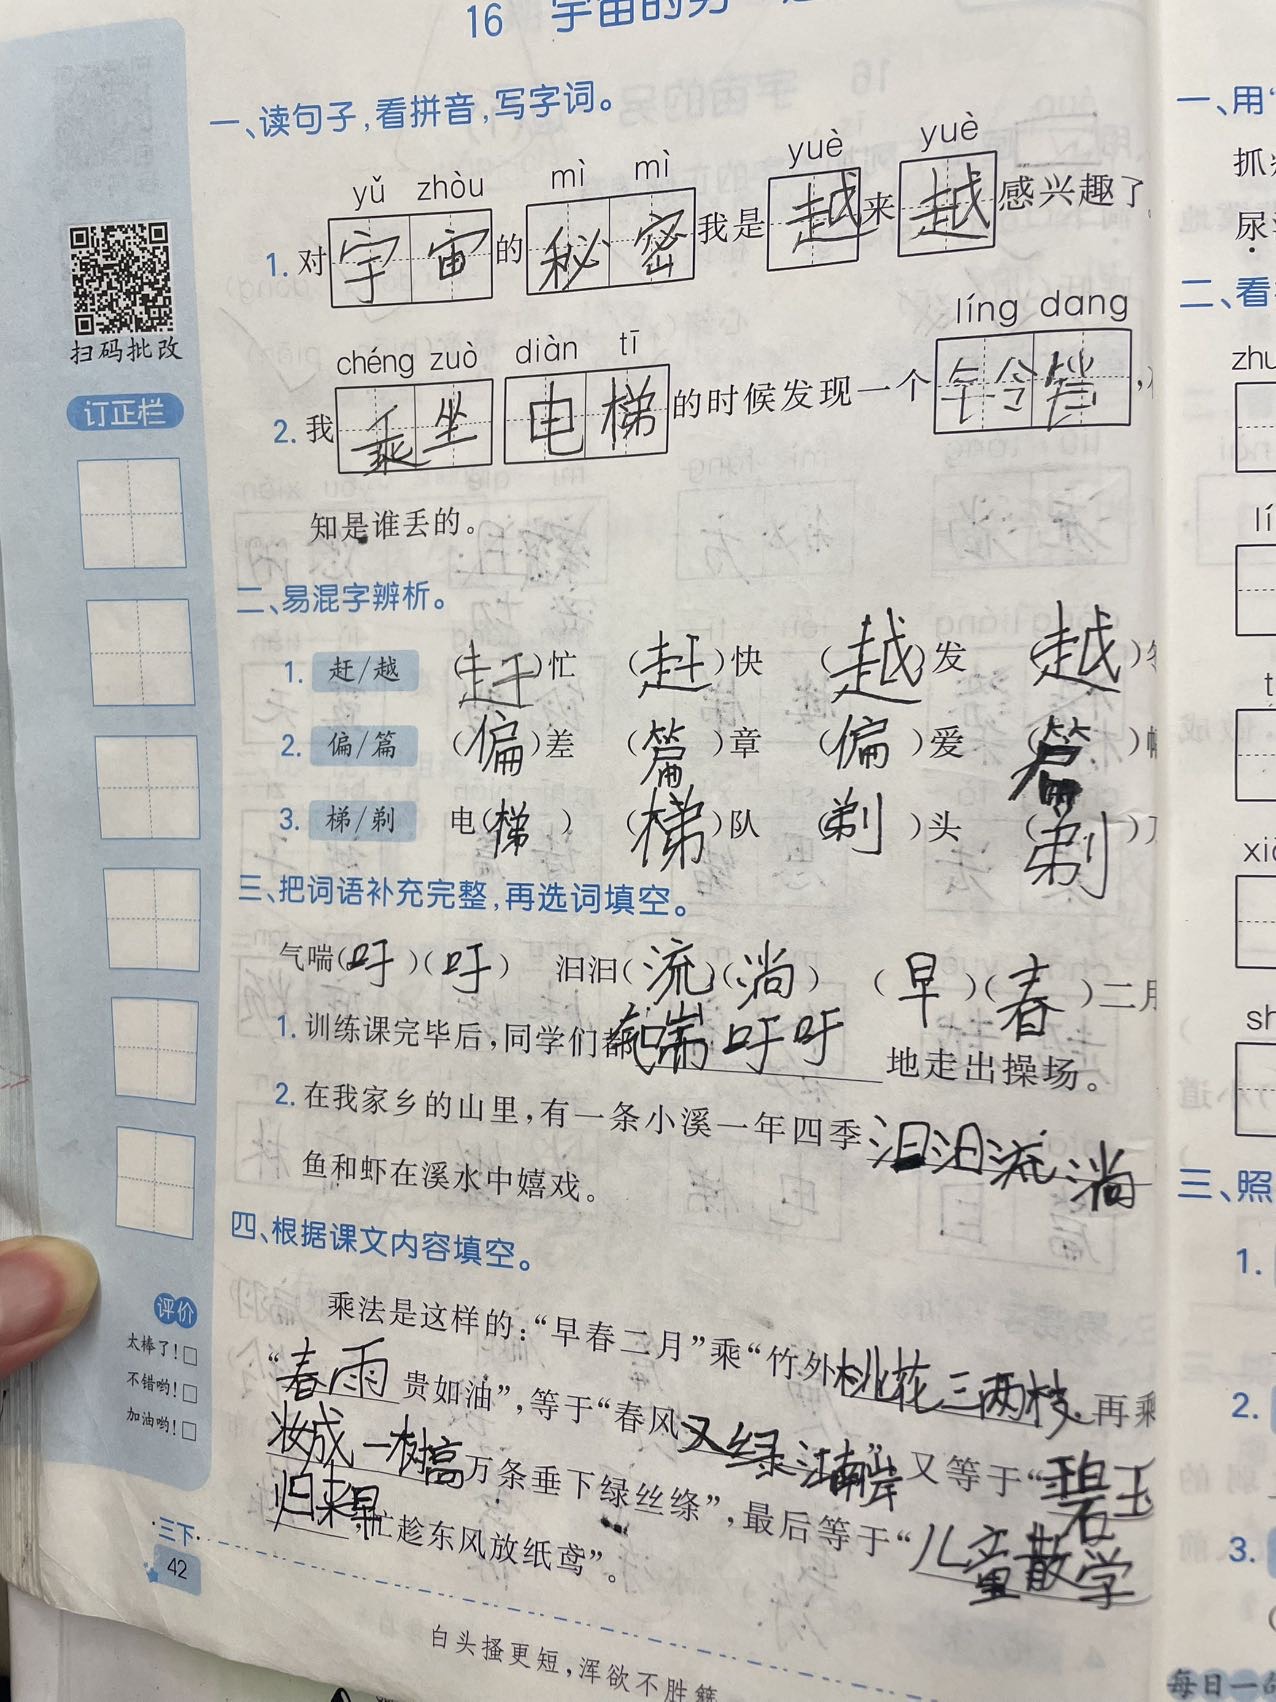 16 宇宙的另一
一、读句子,看拼音,写字词。
yǔ zhòu mì mì yuè yuè
1. 对宇宙的秘密我是越来越感兴趣了
chéng zuò diàn tī líng dang
2. 我乘坐电梯的时候发现一个铃铛,
知是谁丢的。
二、易混字辨析。
1. 赶/越 (赶)忙 (赶)快 (越)发 (越)
2. 偏/篇 (偏)差 (篇)章 (偏)爱 (篇)
3. 梯/剃 电(梯) (梯)队 (剃)头 (剃)
三、把词语补充完整,再选词填空。
气喘(吁)(吁) 汩汩(流)(淌) (早)(春)二月
1. 训练课完毕后,同学们都气喘吁吁地走出操场。
2. 在我家乡的山里,有一条小溪一年四季汩汩流淌
鱼和虾在溪水中嬉戏。
四、根据课文内容填空。
乘法是这样的:“早春二月”乘“竹外桃花三两枝 再乘
“春雨贵如油”,等于“春风又绿江南岸 又等于“碧玉
妆成一树高万条垂下绿丝绦”,最后等于“儿童散学
归来早,忙趁东风放纸鸢”。
扫码批改
订正栏
评价
太棒了!□
不错哟!□
加油哟!□
三下
42
白头搔更短,浑欲不胜簪
一、用
抓
尿
二、看
zhu
lí
t
xi
sh
三、照
1.
2.
3.
每日一